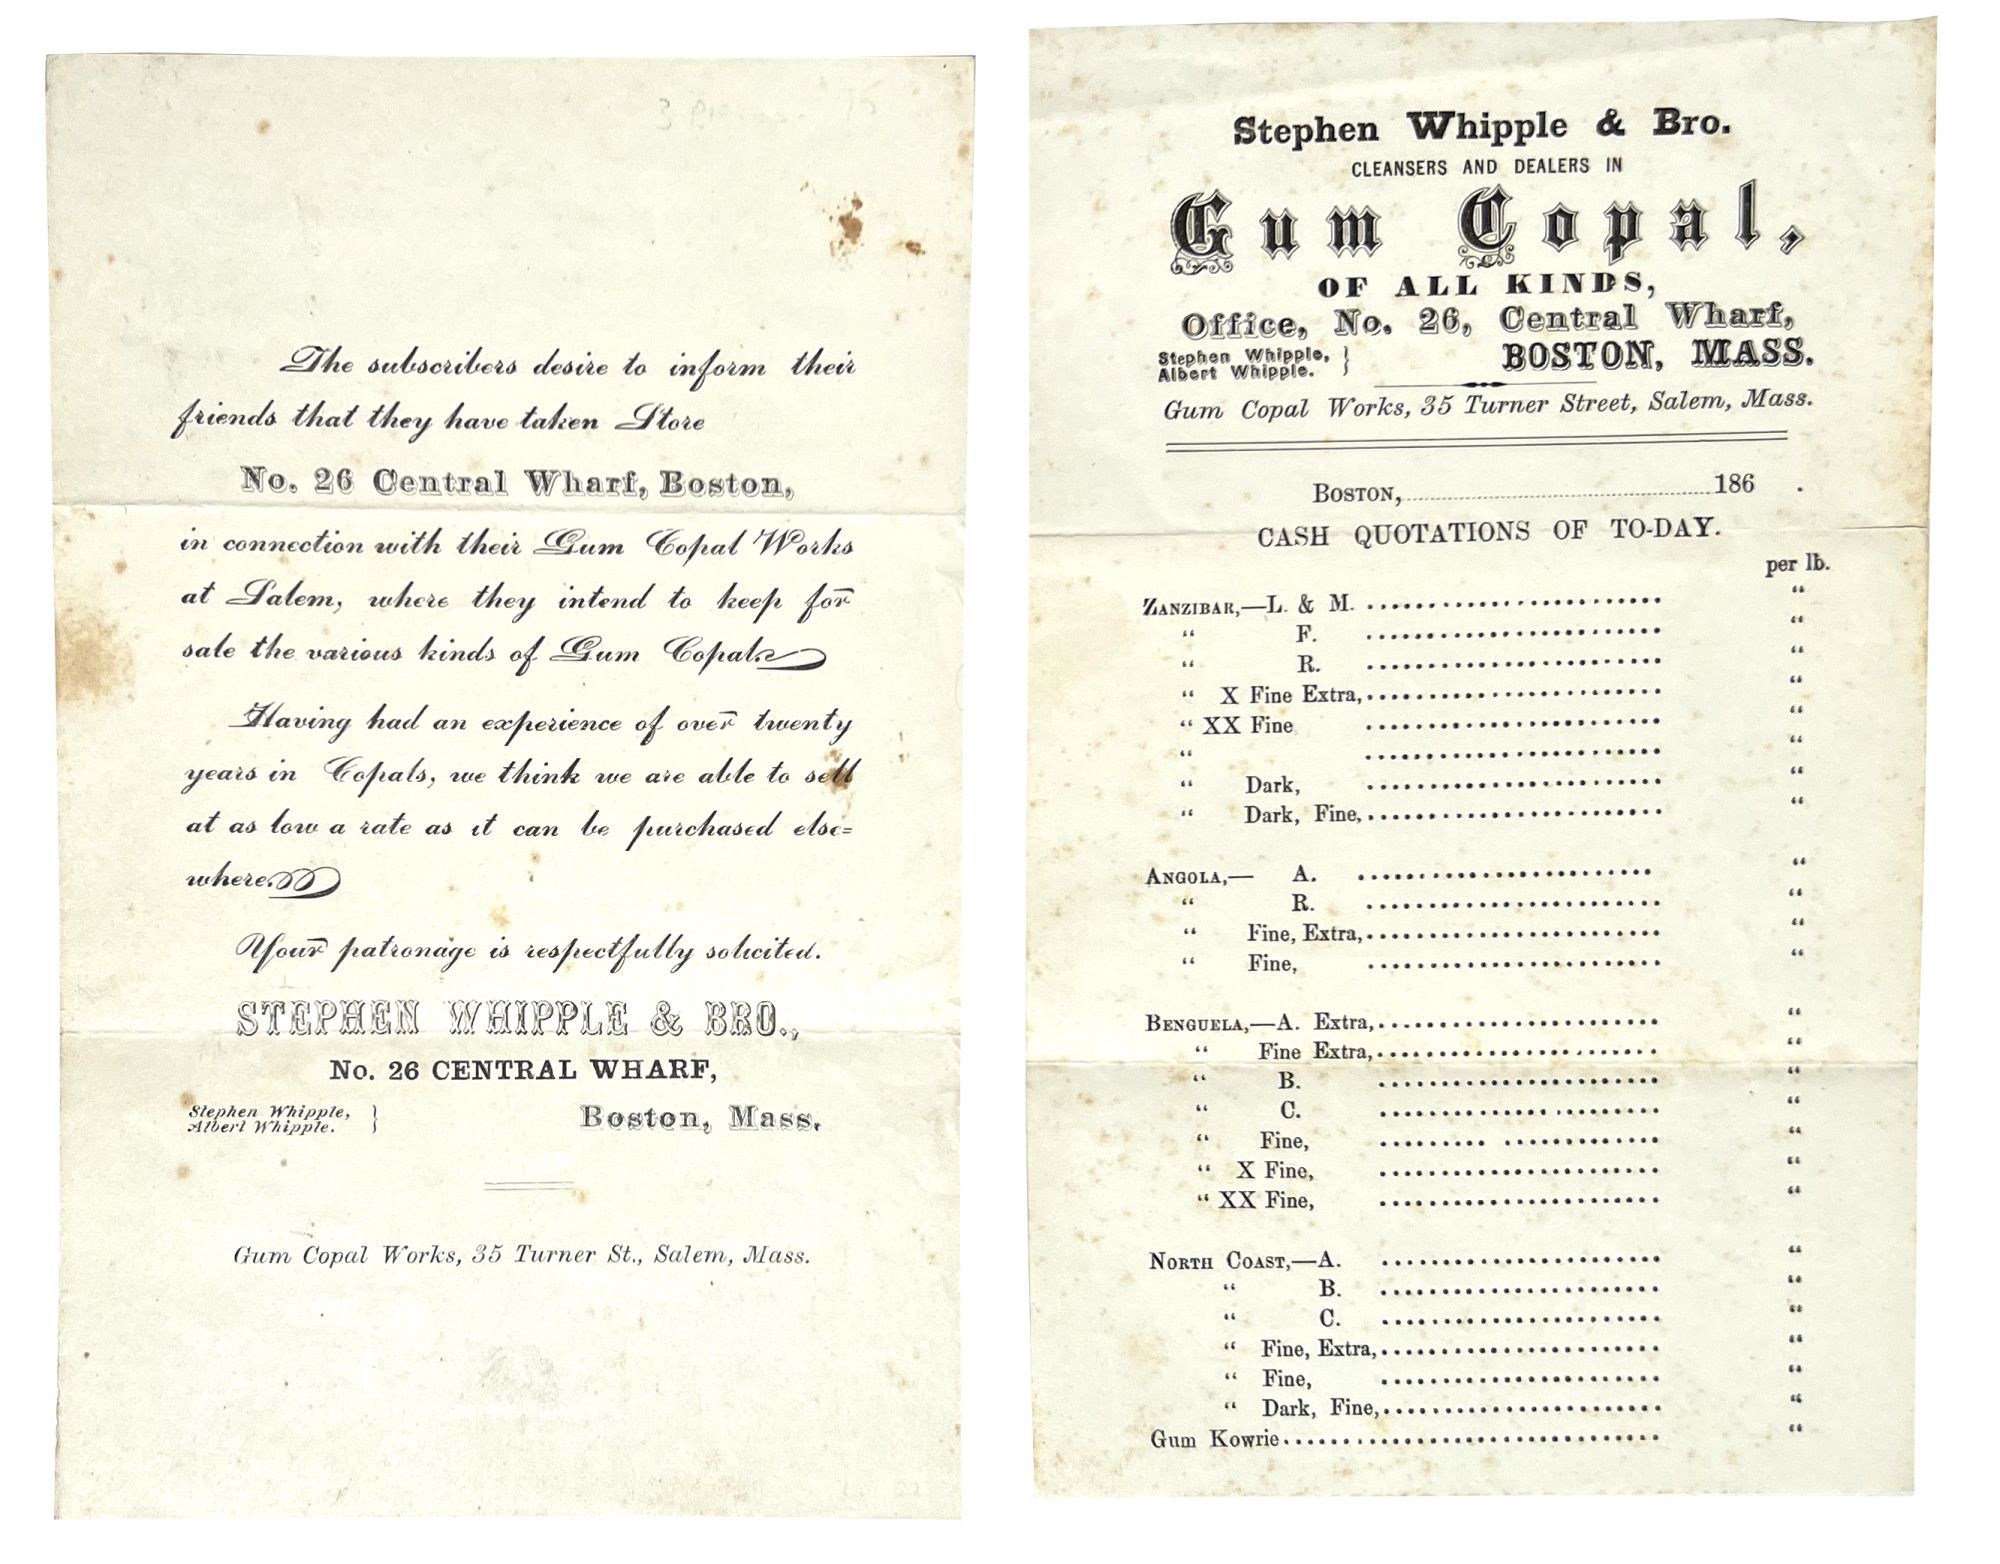 The subscribers desire to inform their
friends that they have taken Store
No. 26 Central Wharf, Boston,
in connection with their Gum Copal Works
at Salem, where they intend to keep for
sale the various kinds of Gum Copal.
Having had an experience of over twenty
years in Copals, we think we are able to sell
at as low a rate as it can be purchased else=
where.
Your patronage is respectfully solicited.
STEPHEN WHIPPLE & BRO.,
No. 26 CENTRAL WHARF,
Stephen Whipple, }
Albert Whipple.
Boston, Mass.
Gum Copal Works, 35 Turner St., Salem, Mass.
Stephen Whipple & Bro.
CLEANSERS AND DEALERS IN
Gum Copal,
OF ALL KINDS,
Office, No. 26, Central Wharf,
Stephen Whipple, }
Albert Whipple.
BOSTON, MASS.
Gum Copal Works, 35 Turner Street, Salem, Mass.
BOSTON,..............................186 .
CASH QUOTATIONS OF TO-DAY.
per lb.
ZANZIBAR,—L. & M. .............................. “
“ F. .............................. “
“ R. .............................. “
“ X Fine Extra, .............................. “
“ XX Fine .............................. “
“ .............................. “
“ Dark, .............................. “
“ Dark, Fine, .............................. “
ANGOLA,— A. .............................. “
“ R. .............................. “
“ Fine, Extra, .............................. “
“ Fine, .............................. “
BENGUELA,—A. Extra, .............................. “
“ Fine Extra, .............................. “
“ B. .............................. “
“ C. .............................. “
“ Fine, .............................. “
“ X Fine, .............................. “
“ XX Fine, .............................. “
NORTH COAST,—A. .............................. “
“ B. .............................. “
“ C. .............................. “
“ Fine, Extra, .............................. “
“ Fine, .............................. “
“ Dark, Fine, .............................. “
Gum Kowrie .............................. “